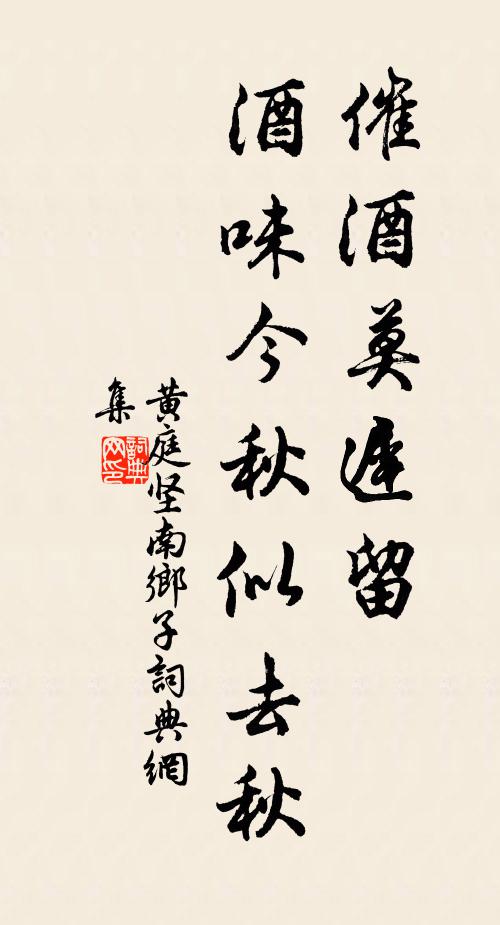 催酒莫遲留
酒味今秋似去秋
黄庭坚南鄉子詞典網
集
詞典网印